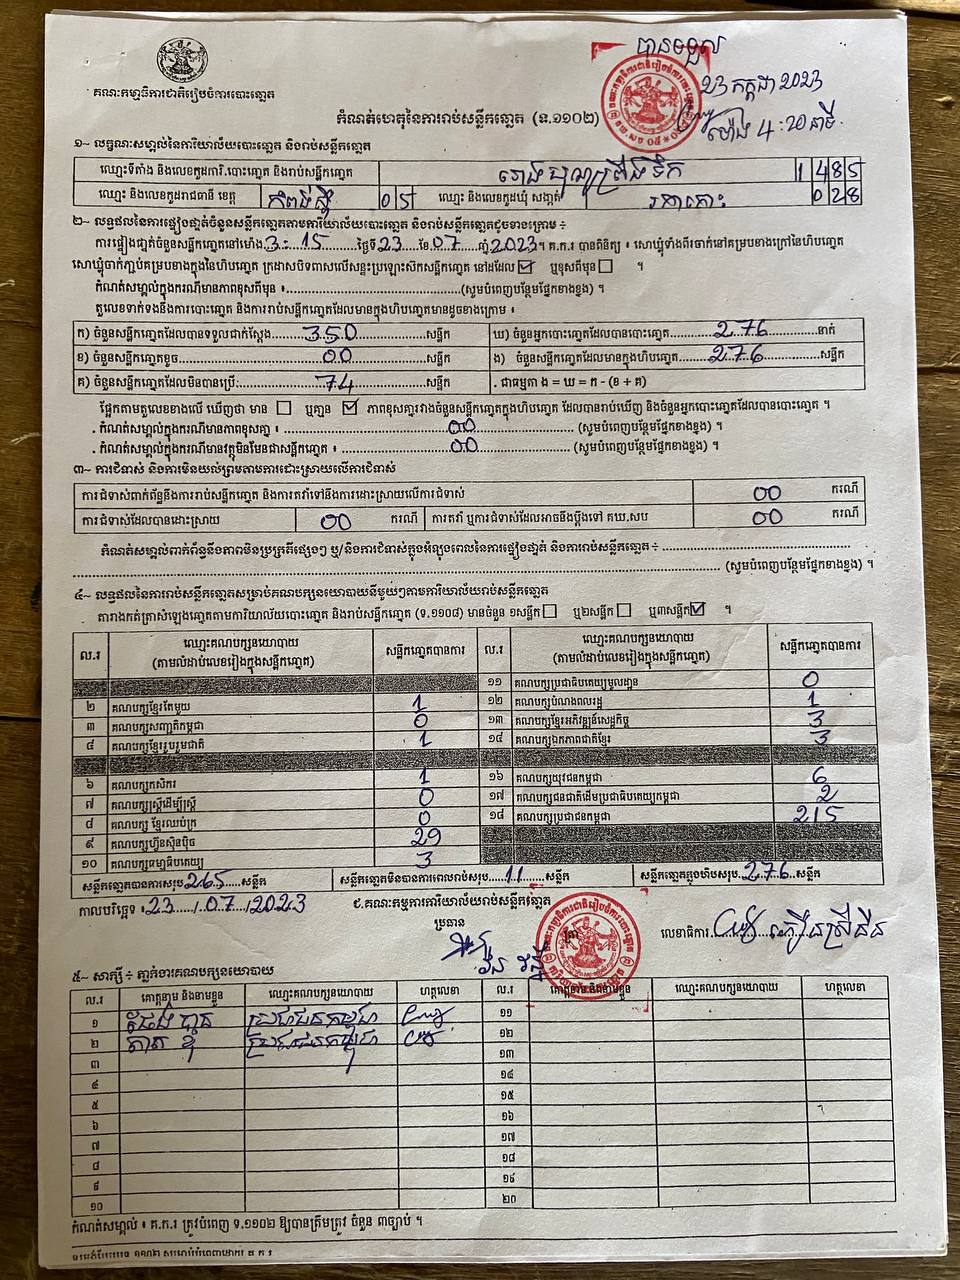 បានទទួល
23 កក្កដា 2023
ម៉ោង 4:20 នាទី
គណៈកម្មាធិការជាតិរៀបចំការបោះឆ្នោត
កំណត់ហេតុនៃការរាប់សន្លឹកឆ្នោត (ទ.១១០២)
១~ លក្ខណៈសម្គាល់នៃការិយាល័យបោះឆ្នោត និងរាប់សន្លឹកឆ្នោត
ឈ្មោះទីតាំង និងលេខកូដការិ.បោះឆ្នោត និងរាប់សន្លឹកឆ្នោត 1485
ឈ្មោះ និងលេខកូដរាជធានី ខេត្ត កំពង់ស្ពឺ 05 ឈ្មោះ និងលេខកូដឃុំ សង្កាត់ រកាកោះ 028
២~ លទ្ធផលនៃការផ្ទៀងផ្ទាត់ចំនួនសន្លឹកឆ្នោតតាមការិយាល័យបោះឆ្នោត និងរាប់សន្លឹកឆ្នោតដូចខាងក្រោម ៖
ការផ្ទៀងផ្ទាត់ចំនួនសន្លឹកឆ្នោតនៅម៉ោង 3:15 ថ្ងៃទី 23 ខែ 07 ឆ្នាំ 2023 ។ គ.ក.រ បានពិនិត្យ ៖ សោឃ្លុំទាំងពីរចាក់នៅគម្របខាងក្រៅនៃហិបឆ្នោត
សោឃ្លុំចាក់ភ្ជាប់គម្របខាងក្នុងនៃហិបឆ្នោត ក្រដាសបិទពាសលើសន្ទះប្រឡោះសឹកសន្លឹកឆ្នោត នៅដដែល ☑ ឬខុសពីមុន ☐ ។
កំណត់សម្គាល់ក្នុងករណីមានភាពខុសពីមុន ៖ (សូមបំពេញបន្ថែមផ្នែកខាងខ្នង) ។
តួលេខទាក់ទងនឹងការបោះឆ្នោត និងការរាប់សន្លឹកឆ្នោតដែលមានក្នុងហិបឆ្នោតមានដូចខាងក្រោម ៖
ក) ចំនួនសន្លឹកឆ្នោតដែលបានទទួលជាក់ស្តែង 350 សន្លឹក ឃ) ចំនួនអ្នកបោះឆ្នោតដែលបានបោះឆ្នោត 276 នាក់
ខ) ចំនួនសន្លឹកឆ្នោតខូច 00 សន្លឹក ង) ចំនួនសន្លឹកឆ្នោតដែលមានក្នុងហិបឆ្នោត 276 សន្លឹក
គ) ចំនួនសន្លឹកឆ្នោតដែលមិនបានប្រើ 74 សន្លឹក . ជាធម្មតា ង = ឃ = ក - (ខ + គ)
ផ្អែកតាមតួលេខខាងលើ ឃើញថា មាន ☐ ឬគ្មាន ☑ ភាពខុសគ្នារវាងចំនួនសន្លឹកឆ្នោតក្នុងហិបឆ្នោត ដែលបានរាប់ឃើញ និងចំនួនអ្នកបោះឆ្នោតដែលបានបោះឆ្នោត ។
. កំណត់សម្គាល់ក្នុងករណីមានភាពខុសគ្នា ៖ 00 (សូមបំពេញបន្ថែមផ្នែកខាងខ្នង) ។
. កំណត់សម្គាល់ក្នុងករណីមានវត្ថុមិនមែនជាសន្លឹកឆ្នោត ៖ 00 (សូមបំពេញបន្ថែមផ្នែកខាងខ្នង) ។
៣~ ការជំទាស់ និងការមិនយល់ព្រមតាមការដោះស្រាយលើការជំទាស់
ការជំទាស់ពាក់ព័ន្ធនឹងការរាប់សន្លឹកឆ្នោត និងការតវ៉ាទៅនឹងការដោះស្រាយលើការជំទាស់ 00 ករណី
ការជំទាស់ដែលបានដោះស្រាយ 00 ករណី ការតវ៉ា ឬការជំទាស់ដែលអាចនឹងប្តឹងទៅ គឃ.សប 00 ករណី
កំណត់សម្គាល់ពាក់ព័ន្ធនឹងភាពមិនប្រក្រតីផ្សេងៗ ឬ/និងការជំទាស់ក្នុងអំឡុងពេលនៃការផ្ទៀងផ្ទាត់ និងការរាប់សន្លឹកឆ្នោត ៖
(សូមបំពេញបន្ថែមផ្នែកខាងខ្នង) ។
៤~ លទ្ធផលនៃការរាប់សន្លឹកឆ្នោតសម្រាប់គណបក្សនយោបាយនីមួយៗតាមការិយាល័យរាប់សន្លឹកឆ្នោត
តារាងកត់ត្រាសំឡេងឆ្នោតតាមការិយាល័យបោះឆ្នោត និងរាប់សន្លឹកឆ្នោត (ទ.១១០៨) មានចំនួន ១សន្លឹក ☐ ឬ២សន្លឹក ☐ ឬ៣សន្លឹក ☑ ។
ល.រ ឈ្មោះគណបក្សនយោបាយ (តាមលំដាប់លេខរៀងក្នុងសន្លឹកឆ្នោត) សន្លឹកឆ្នោតបានការ ល.រ ឈ្មោះគណបក្សនយោបាយ (តាមលំដាប់លេខរៀងក្នុងសន្លឹកឆ្នោត) សន្លឹកឆ្នោតបានការ
១១ គណបក្សប្រជាធិបតេយ្យមូលដ្ឋាន 0
២ គណបក្សខ្មែរតែមួយ 1 ១២ គណបក្សបំណងពលរដ្ឋ 1
៣ គណបក្សសញ្ជាតិកម្ពុជា 0 ១៣ គណបក្សខ្មែរអភិវឌ្ឍន៍សេដ្ឋកិច្ច 3
៤ គណបក្សខ្មែររួបរួមជាតិ 1 ១៤ គណបក្សឯកភាពជាតិខ្មែរ 3
៦ គណបក្សកសិករ 1 ១៦ គណបក្សយុវជនកម្ពុជា 6
៧ គណបក្សស្ត្រីដើម្បីស្ត្រី 0 ១៧ គណបក្សជនជាតិដើមប្រជាធិបតេយ្យកម្ពុជា 2
៨ គណបក្ស ខ្មែរឈប់ក្រ 0 ១៨ គណបក្សប្រជាជនកម្ពុជា 215
៩ គណបក្សហ៊្វុនស៊ិនប៉ិច 29
១០ គណបក្សធម្មាធិបតេយ្យ 3
សន្លឹកឆ្នោតបានការសរុប 265 សន្លឹក សន្លឹកឆ្នោតមិនបានការពេលរាប់សរុប 11 សន្លឹក សន្លឹកឆ្នោតក្នុងហិបសរុប 276 សន្លឹក
កាលបរិច្ឆេទ ៖ 23/07/2023 ជ.គណៈកម្មការការិយាល័យរាប់សន្លឹកឆ្នោត
ប្រធាន
លេខាធិការ
៥~ សាក្សី ៖ ភ្នាក់ងារគណបក្សនយោបាយ
ល.រ គោត្តនាម និងនាមខ្លួន ឈ្មោះគណបក្សនយោបាយ ហត្ថលេខា ល.រ គោត្តនាម និងនាមខ្លួន ឈ្មោះគណបក្សនយោបាយ ហត្ថលេខា
១ ប្រជាជនកម្ពុជា ១១
២ ប្រជាជនកម្ពុជា ១២
៣ ១៣
៤ ១៤
៥ ១៥
៦ ១៦
៧ ១៧
៨ ១៨
៩ ១៩
១០ ២០
កំណត់សម្គាល់ ៖ គ.ក.រ ត្រូវបំពេញ ទ.១១០២ ឱ្យបានត្រឹមត្រូវ ចំនួន ៣ច្បាប់ ។